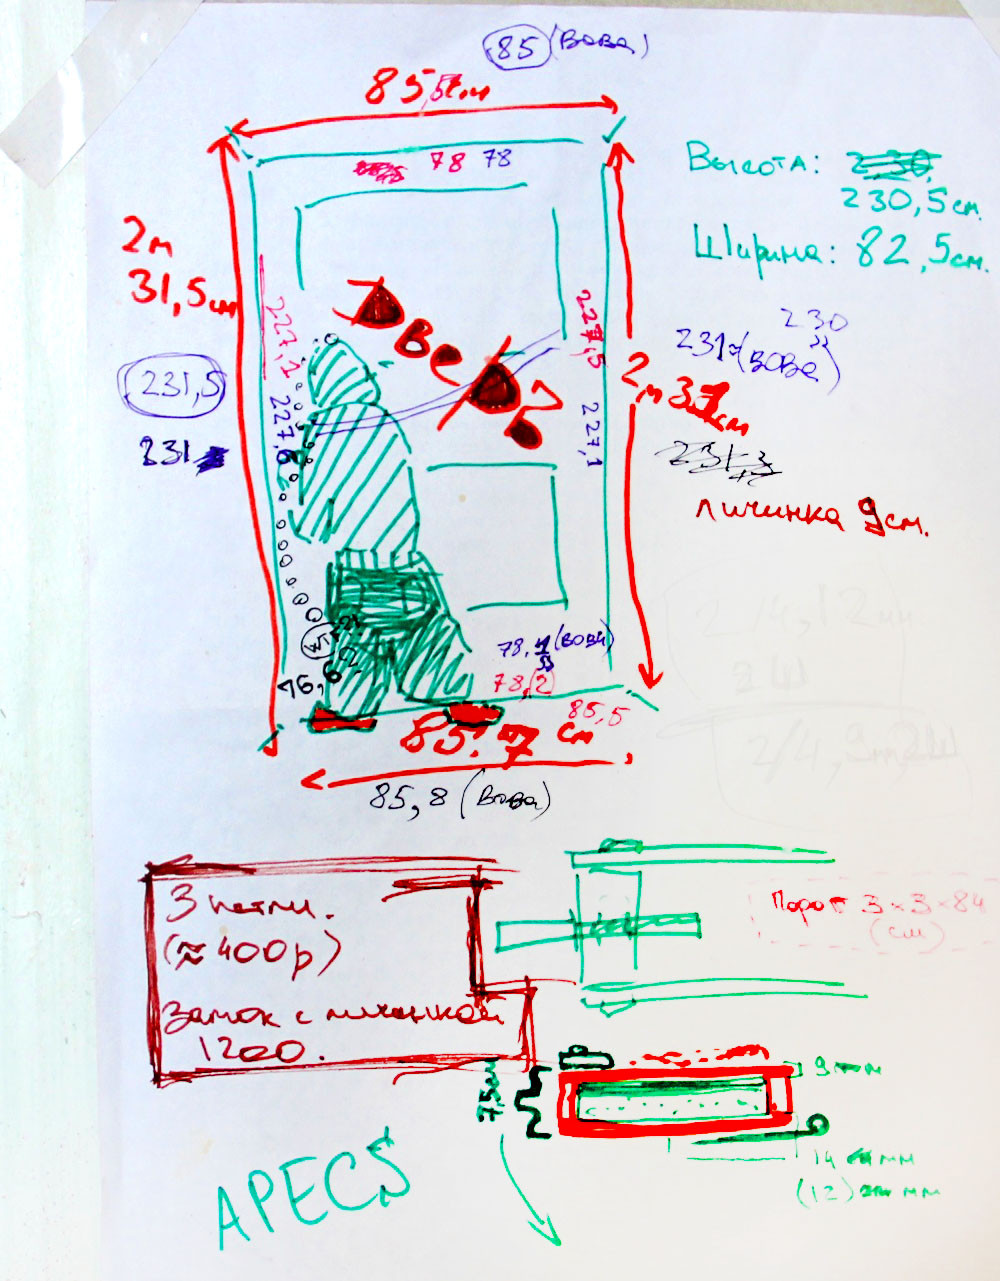 85 (Вова)
85,5 см
78 78
Высота: 230,
230,5 см.
Ширина: 82,5см.
2м
31,5 см
227,1
227,5
Дверь
230
231 (вова)
231,5
227,6
227,1
2м 31 см
231
231,3
личинка 9см.
2/4,12мм
2Ш
78,1 (вова)
78,(2)
85,5
85.7 см
85,8 (Вова)
3 петли.
(≈400р)
Замок с личинкой
1200.
Порог 3×3×84
(см)
9мм
7,5см
14 мм
(12) мм
APECS